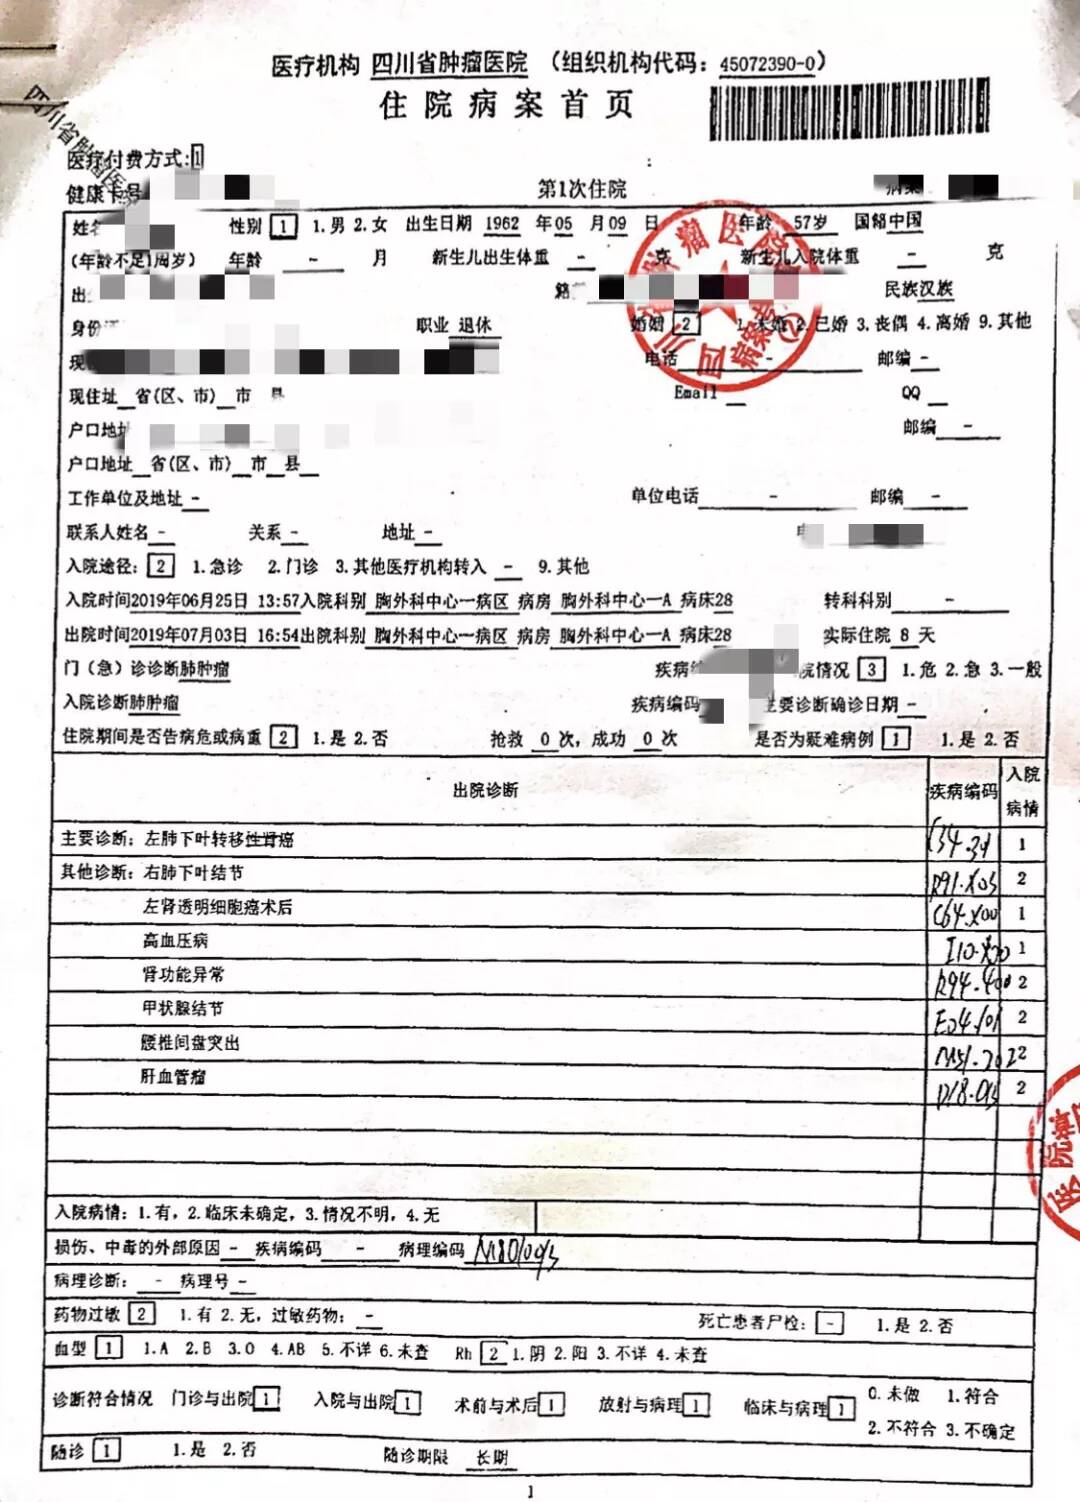 医疗机构 四川省肿瘤医院 （组织机构代码：45072390-0）
住院病案首页
四川省肿瘤医
医疗付费方式:1
健康卡号
第1次住院
病案
姓名 性别 1 1.男 2.女 出生日期 1962 年05 月09 日 年龄 57岁 国籍中国
(年龄不足1周岁) 年龄 - 月 新生儿出生体重 - 克 新生儿入院体重 - 克
出 籍 民族汉族
身份证 职业 退休 婚姻 2 1.未婚 2.已婚 3.丧偶 4.离婚 9.其他
现 电话 - 邮编 -
现住址 省(区、市) 市 县 Email QQ
户口地址 邮编 -
户口地址 省(区、市) 市 县
工作单位及地址 - 单位电话 - 邮编 -
联系人姓名 - 关系 - 地址 -
入院途径: 2 1.急诊 2.门诊 3.其他医疗机构转入 - 9.其他
入院时间2019年06月25日 13:57入院科别 胸外科中心一病区 病房 胸外科中心一A 病床28 转科科别 -
出院时间2019年07月03日 16:54出院科别 胸外科中心一病区 病房 胸外科中心一A 病床28 实际住院 8 天
门（急）诊诊断肺肿瘤 疾病编 院情况 3 1.危 2.急 3.一般
入院诊断肺肿瘤 疾病编码 主要诊断确诊日期 -
住院期间是否告病危或病重 2 1.是 2.否 抢救 0 次，成功 0 次 是否为疑难病例 1 1.是 2.否
出院诊断 疾病编码 入院病情
主要诊断: 左肺下叶转移性肾癌 1
其他诊断: 右肺下叶结节 R91.X03 2
左肾透明细胞癌术后 C64.X00 1
高血压病 I10.X00 1
肾功能异常 R94.400 2
甲状腺结节 E04.101 2
腰椎间盘突出 M51.202 2
肝血管瘤 2
入院病情: 1.有，2.临床未确定，3.情况不明，4.无
损伤、中毒的外部原因 - 疾病编码 - 病理编码
病理诊断: - 病理号 -
药物过敏 2 1.有 2.无，过敏药物: - 死亡患者尸检: - 1.是 2.否
血型 1 1.A 2.B 3.O 4.AB 5.不详 6.未查 Rh 2 1.阴 2.阳 3.不详 4.未查
诊断符合情况 门诊与出院 1 入院与出院 1 术前与术后 1 放射与病理 1 临床与病理 1 0.未做 1.符合
2.不符合 3.不确定
随诊 1 1.是 2.否 随诊期限 长期
1